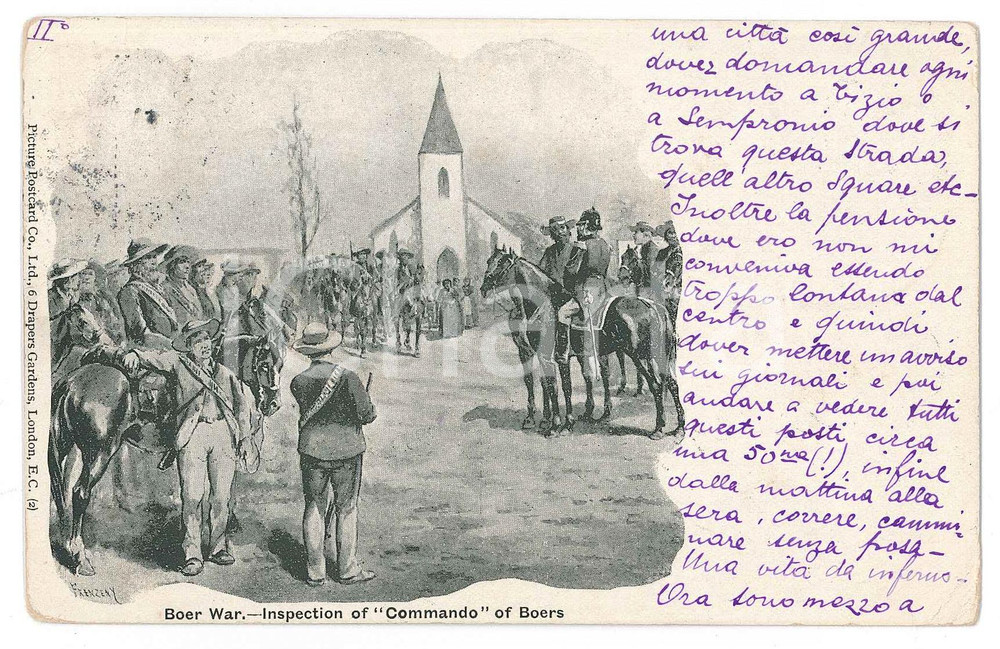 IIº
Picture Postcard Co., Ltd., 6 Drapers Gardens, London, E.C. (2)
FRENZENY
Boer War.—Inspection of "Commando" of Boers
una città così grande,
dover domandare ogni
momento a Tizio o
a Sempronio dove si
trova questa strada,
quell'altro Square etc—
Inoltre la pensione
dove ero non mi
conveniva essendo
troppo lontana dal
centro e quindi
dover mettere un avviso
sui giornali e poi
andare a vedere tutti
questi posti, circa
una 50na (!), infine
dalla mattina alla
sera, correre, cammi-
nare senza posa—
Una vita da inferno—
Ora sono mezzo a